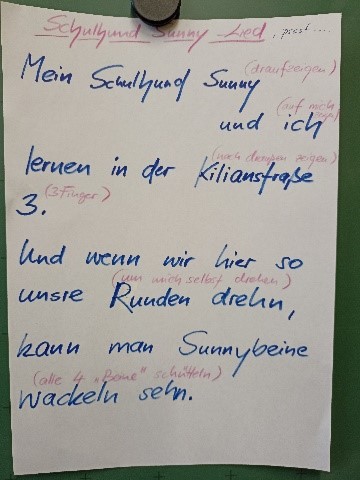 Schulhund Sunny-Lied, psst....
Mein Schulhund Sunny (draufzeigen)
und ich (auf mich zeigen)
lernen in der Kilianstraße (nach draußen zeigen)
3. (3 Finger)
Und wenn wir hier so
unsre Runden drehn, (um mich selbst drehen)
kann man Sunnybeine
(alle 4 „Beine" schütteln)
wackeln sehn.